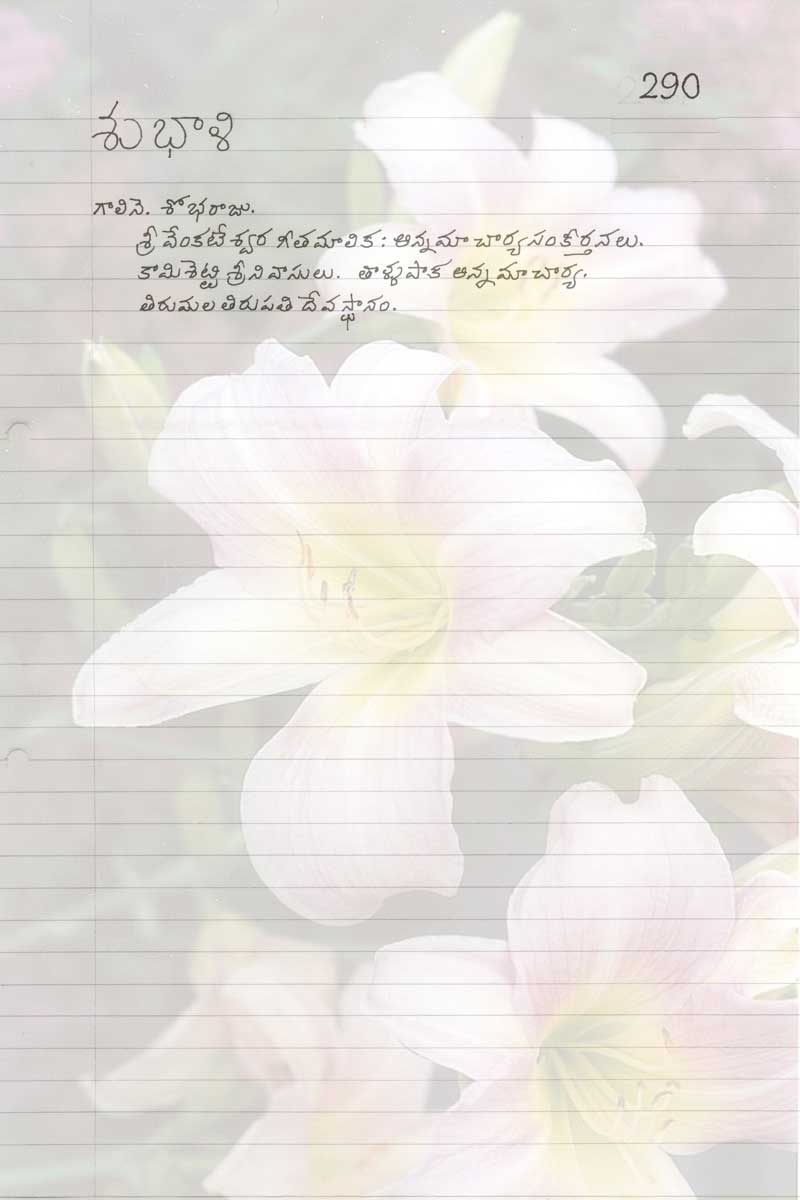 290
శుభాళి
గాలినె. శోభరాజు.
శ్రీ వేంకటేశ్వర గీతమాలిక : అన్నమాచార్య సంకీర్తనలు.
కామిశెట్టి శ్రీనివాసులు. తాళ్ళపాక అన్నమాచార్య.
తిరుమల తిరుపతి దేవస్థానం.